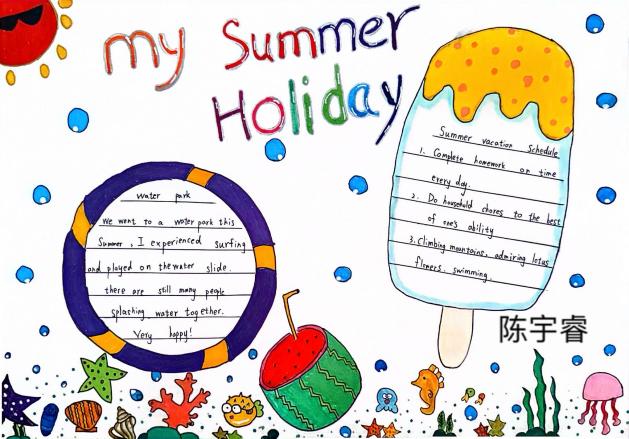 my Summer
Holiday
water park
We went to a water park this
Summer, I experienced surfing
and played on the water slide.
there are still many people
splashing water together.
Very happy!
Summer vacation Schedule
1. Complete homework on time
every day.
2. Do household chores to the best
of one's ability
3. Climbing mountains, admiring lotus
flowers, swimming.
陈宇睿